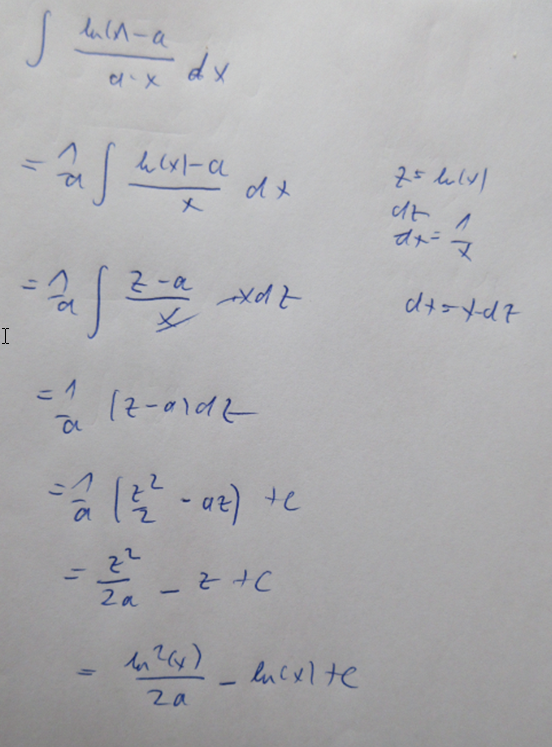 ∫ (ln(x)-a)/(a·x) dx
= 1/a ∫ (ln(x)-a)/x dx
z = ln(x)
dz/dx = 1/x
= 1/a ∫ (z-a)/x ·x dz
dx = x·dz
= 1/a (z-a) dz
= 1/a (z²/2 - az) +C
= z²/2a - z +C
= ln²(x)/2a - ln(x) +C